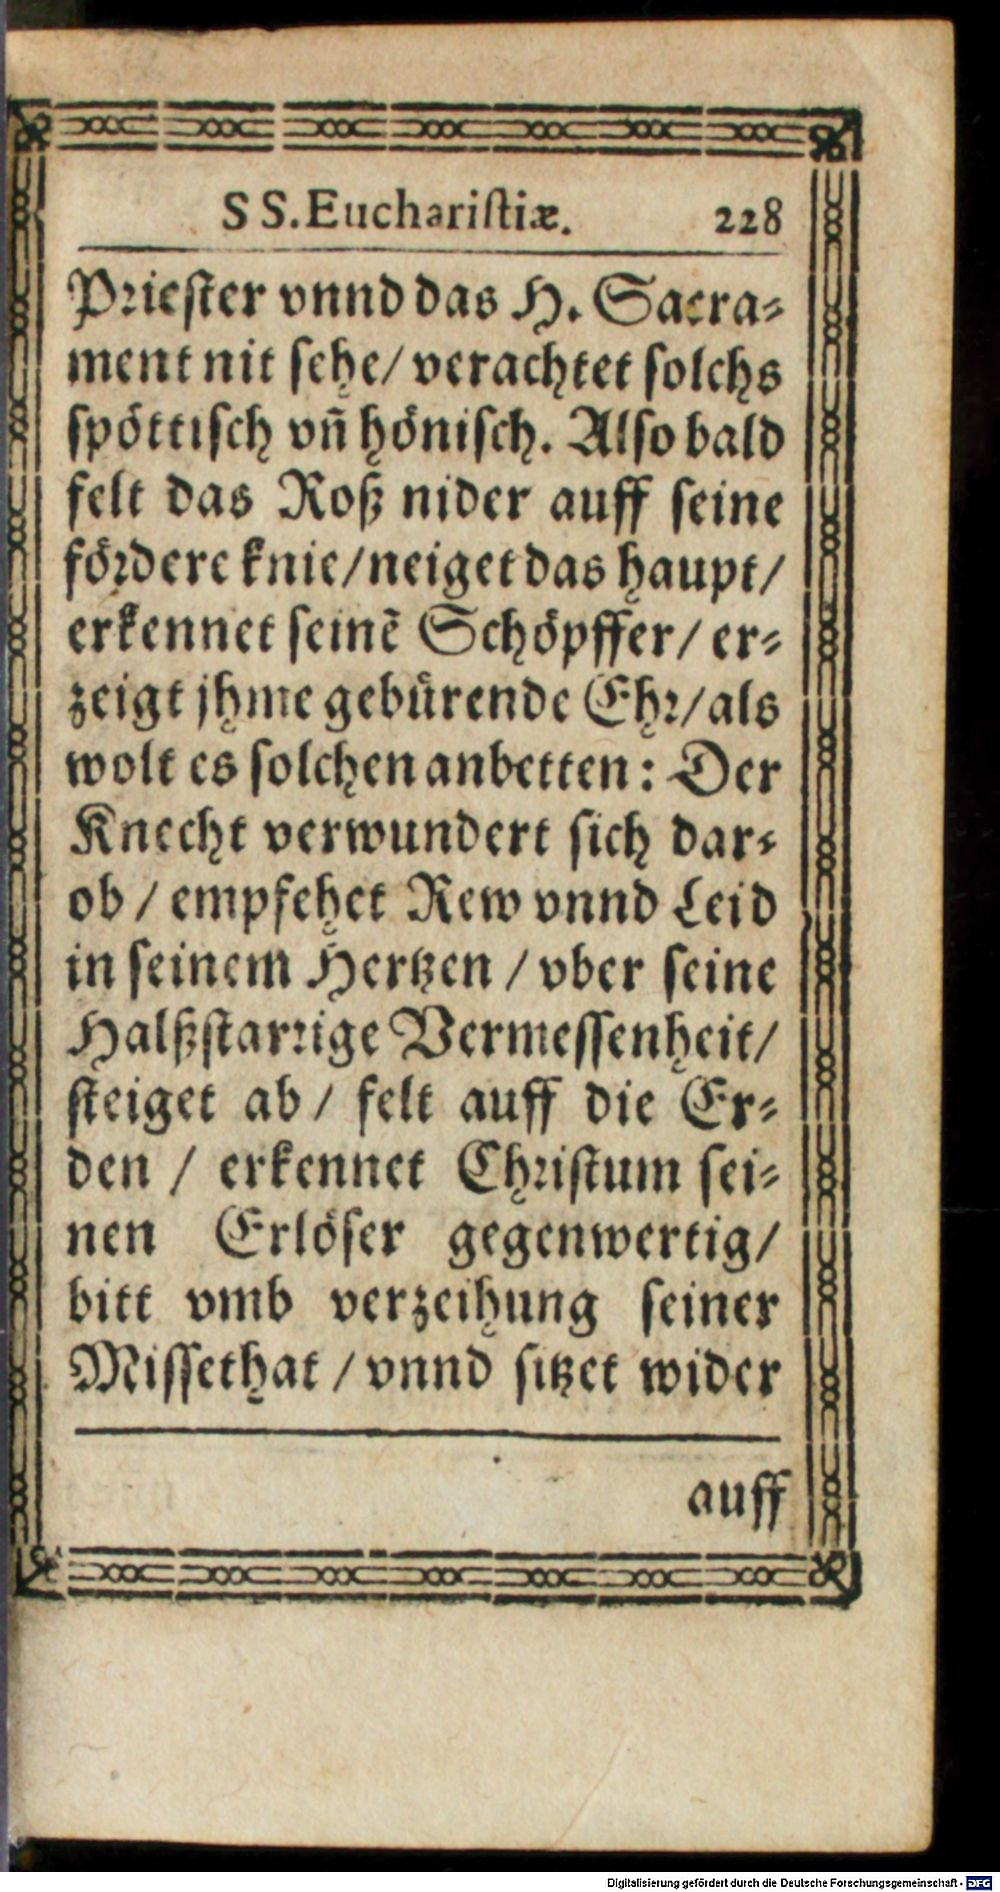 SS. Euchariſtiæ. 228
Prieſter vnnd das H. Sacra⸗
ment nit ſehe/ verachtet ſolchs
ſpöttiſch vñ höniſch. Alſo bald
felt das Roß nider auff ſeine
fördere knie/neiget das haupt/
erkennet ſeinẽ Schöpffer/ er⸗
zeigt jhme gebürende Ehr/als
wolt es ſolchen anbetten: Der
Knecht verwundert ſich dar⸗
ob / empfehet Rew vnnd Leid
in ſeinem Hertzen / vber ſeine
Halßſtarrige Vermeſſenheit/
ſteiget ab / felt auff die Er⸗
den / erkennet Chriſtum ſei⸗
nen Erlöſer gegenwertig/
bitt vmb verzeihung ſeiner
Miſſethat / vnnd ſitzet wider
auff
Digitalisierung gefördert durch die Deutsche Forschungsgemeinschaft - DFG